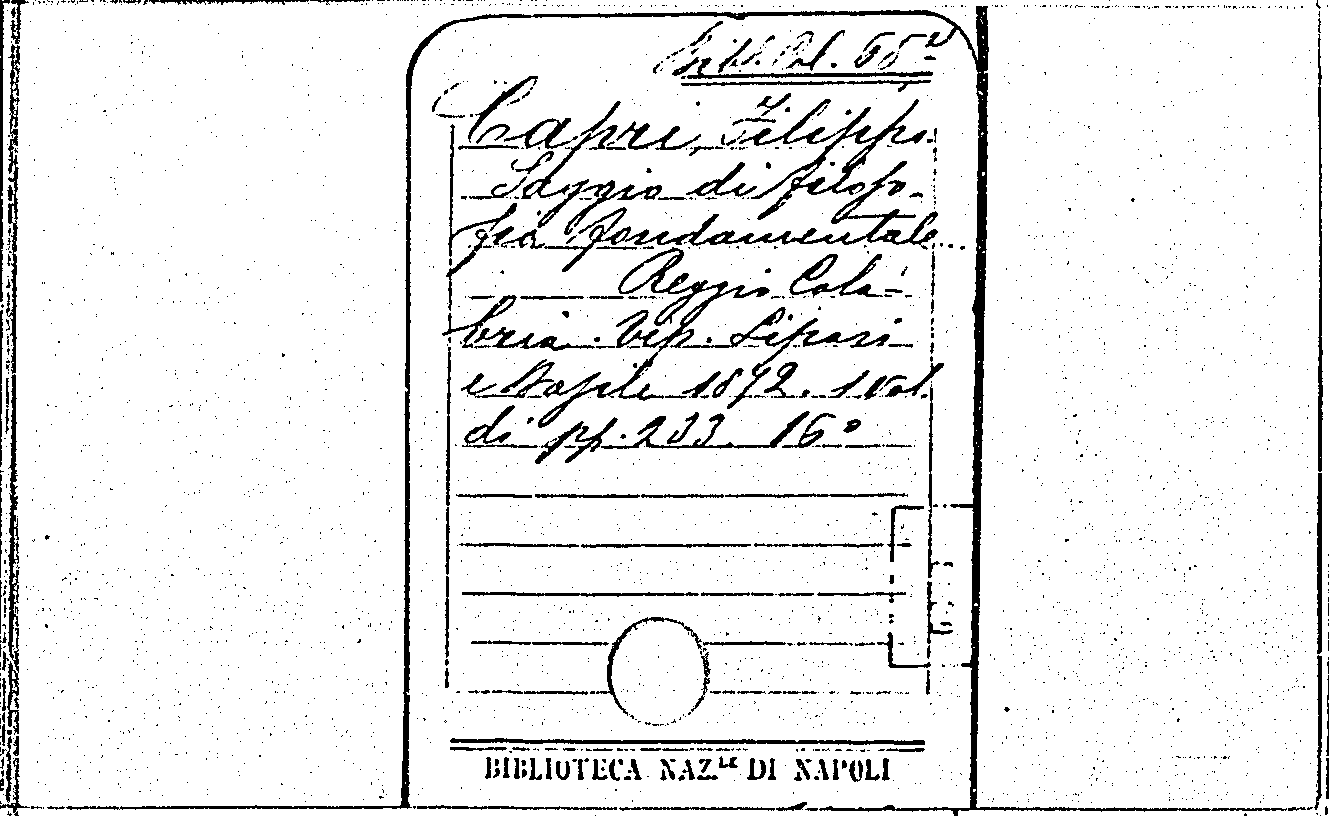 Bibl. Pol. 68
Capri, Filippo
Saggio di filoso-
fia fondamentale...
Reggio Cala-
bria. Tip. Lipari
e Basile 1872. 1 vol.
di pp. 233. 16°
BIBLIOTECA NAZ.LE DI NAPOLI